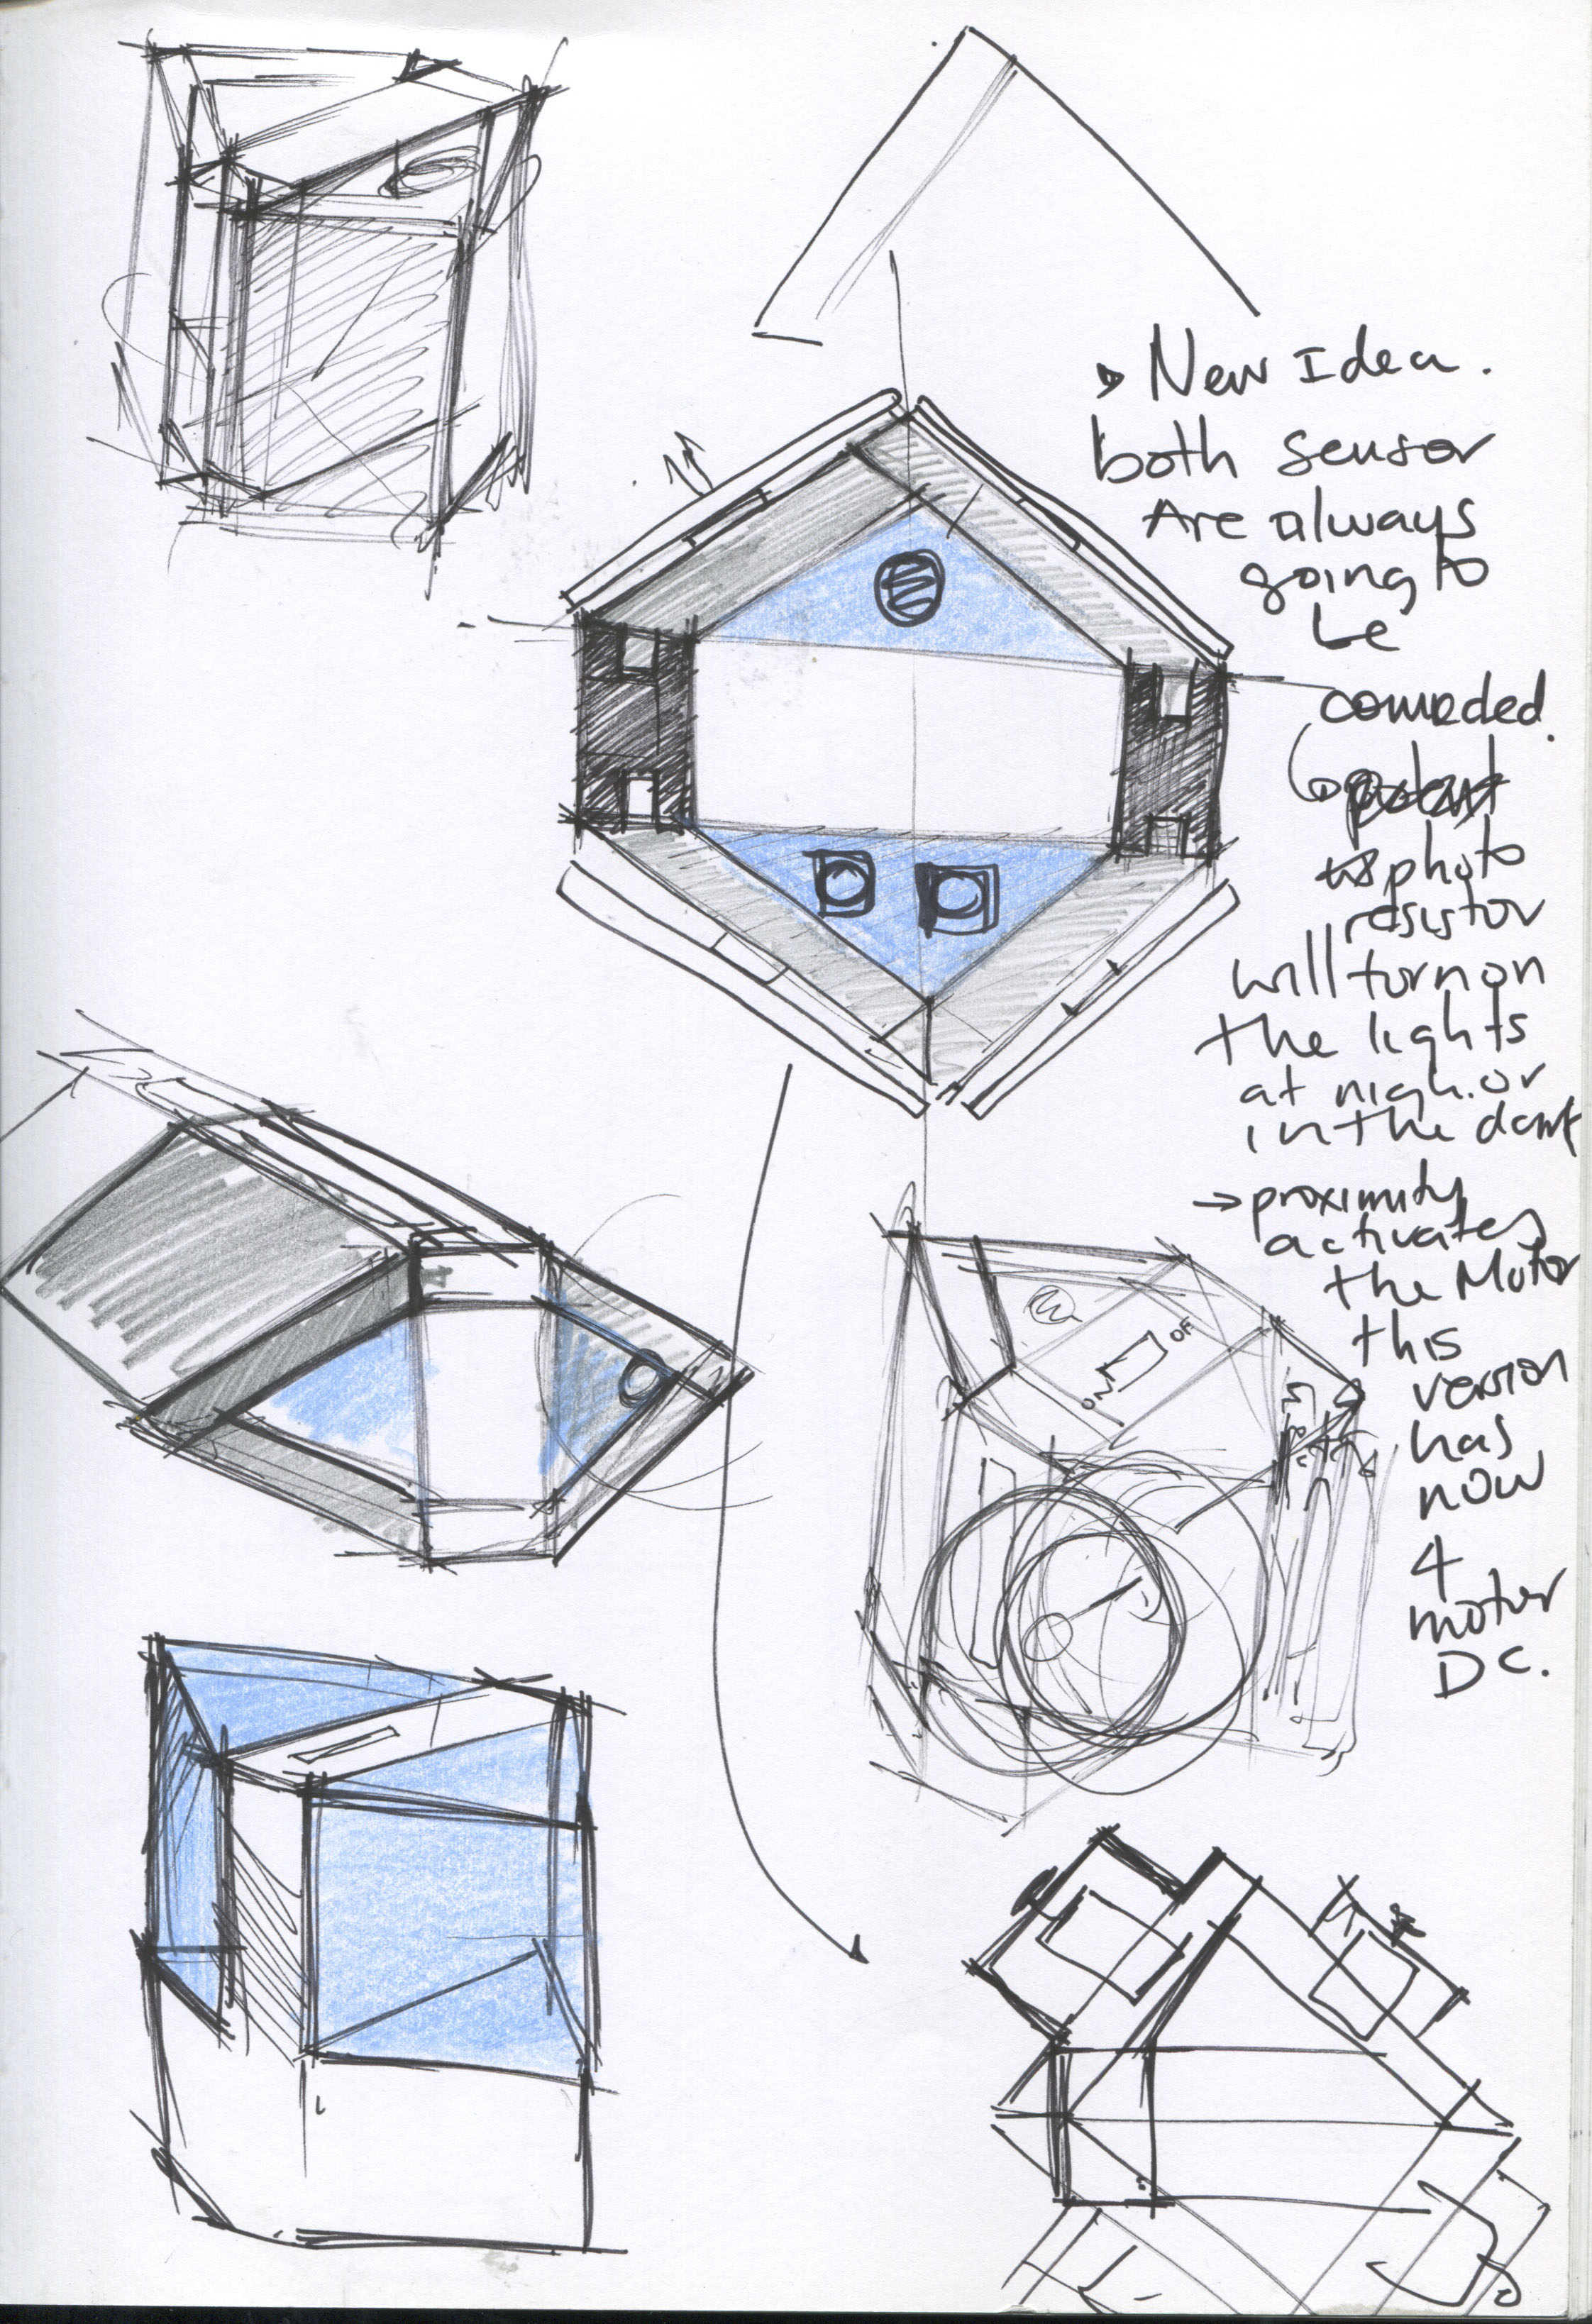 New Idea.
both sensor
Are always
going to
be
photo
resistor
will turn on
the lights
at nigh. or
in the dark
→ proximity
activates
the Motor
this
version
has
now
4
motor
DC.
OF
ON